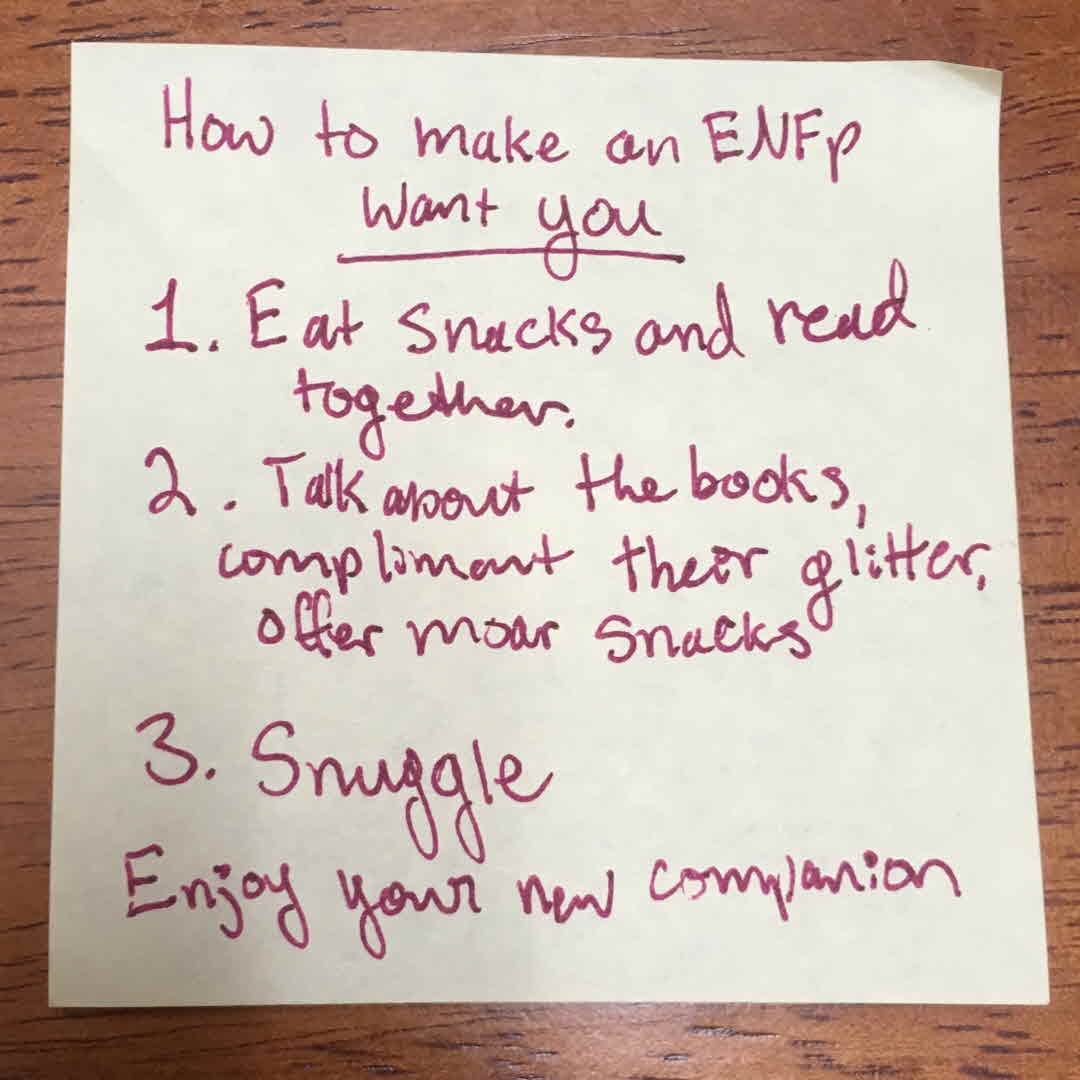 How to make an ENFp
Want you
1. Eat snacks and read
together.
2. Talk about the books,
compliment their glitter,
offer moar snacks
3. Snuggle
Enjoy your new companion